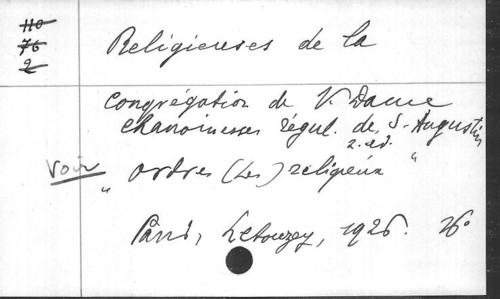 110
76
2
Religieuses de la
congrégation de N. Dame
chanoinesses régul. de S. Augustin
2. ed.
Voir " ordres (Les) religieux "
Paris, Letouzey, 1926. 16°